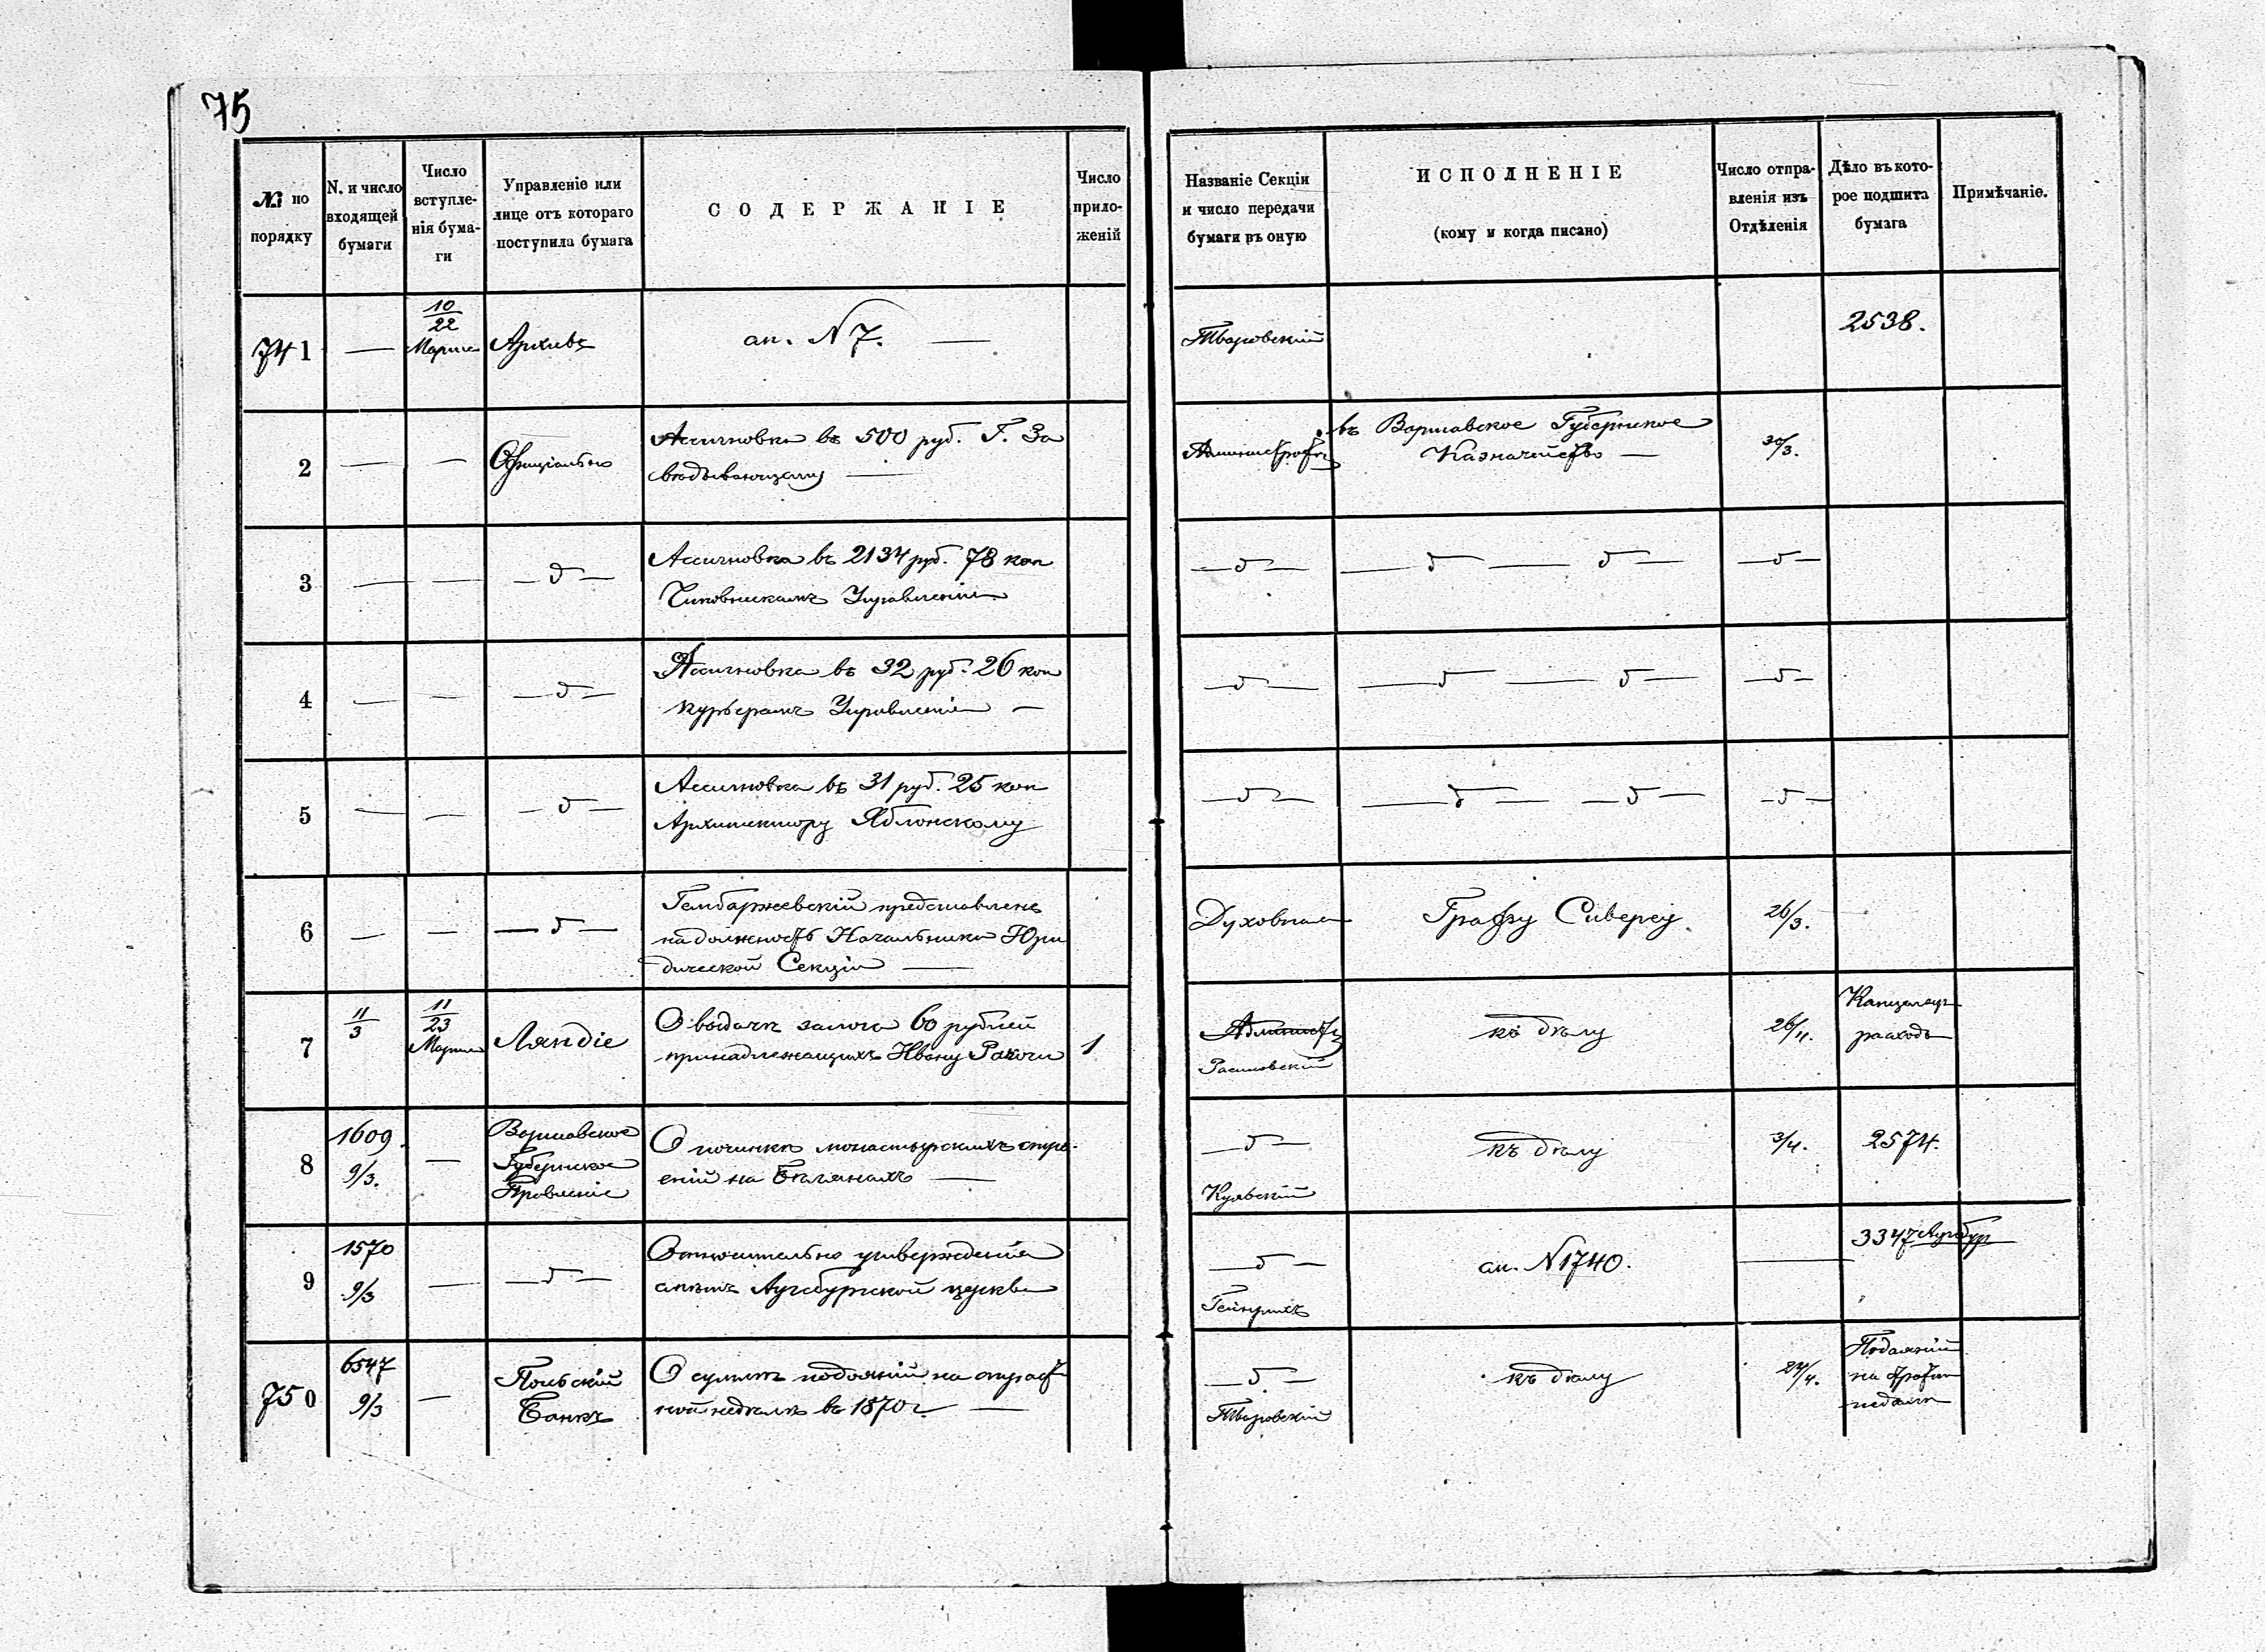 75
№ по порядку
N. и число входящей бумаги
Число вступле-нія бума-ги
Управленіе или лице отъ котораго поступила бумага
СОДЕРЖАНІЕ
Число прило-женій
Названіе Секціи и число передачи бумаги въ оную
ИСПОЛНЕНІЕ
(кому и когда писано)
Число отпра-вленія изъ Отдѣленія
Дѣло въ кото-рое подшита бумага
Примѣчаніе.
741 — 10/22 Марта Архивъ ан. N 7. — 2538.
2 — — Офиціально Ассигновка въ 500 руб. Г. За
вѣдывающему —
въ Варшавское Губернское
Казначейство — 30/3.
3 — — — д — Ассигновка въ 2134 руб. 78 коп
Чиновникамъ Управленія
— д — — д — — д — — д —
4 — — — д — Ассигновка въ 32 руб. 26 коп
Курьерамъ Управленія —
— д — — д — — д — — д —
5 — — — д — Ассигновка въ 31 руб. 25 коп
Архитектору Яблонскому
— д — — д — — д — — д —
6 — — — д — Гембаржевскій представленъ
на должность Начальника Юри
дической Секціи —
Духовная Графу Сиверсу. 26/3.
7 11/3 11/23 Марта Ляндіе О выдачѣ залога 60 рублей
принадлежащихъ Ивану 1
къ дѣлу 26/11. расходы
8 1609. 9/3. — Варшавское
Губернское
Правленіе
О починкѣ монастырскихъ стро-
еній на Бѣлянахъ —
— д — къ дѣлу 3/4. 2574.
9 1570 9/3 — — д — Относительно утвержденія
смѣтъ Аугсбургской церкви
— д —
Гейнрихъ
ан. N 1740. — 3347
750 6547 9/3 — Польскій
Банкъ
О суммѣ подаяній на страст
ной недѣлѣ въ 1870 г. —
— д — къ дѣлу 24/4. Подаяній
на страстн
недѣли